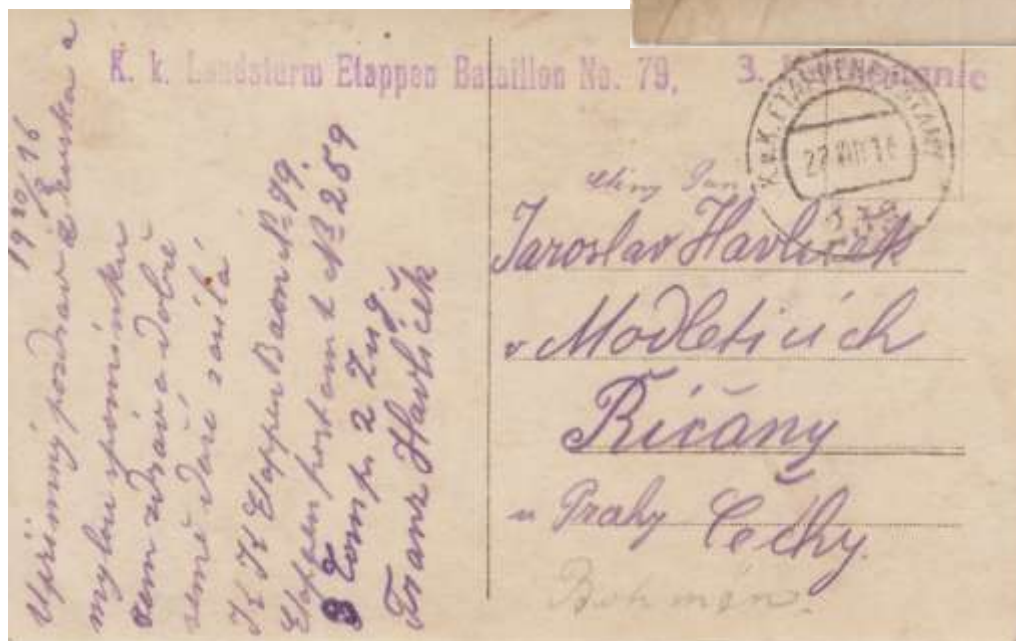 K. k. Landsturm Etappen Bataillon No. 79.
3.
K.u.K. ETAPPENPOSTAMT
22 VIII 16
339
19 20/8 16
Upřimný pozdrav z Ruska a
mylou spomínku
sem zdráv a dobře
semě daří zasílá
K K Etappen Baon № 79
Etappenpostamt № 259
3 Comp. 2 Zug
Franz Havlíček
Pan
Jaroslav Havlíček
v Modleticích
Říčany
u Prahy Čechy.
Böhmen.